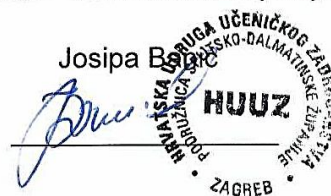 Josipa Banić
HRVATSKA UDRUGA UČENIČKOG ZADRUGARSTVA
PODRUŽNICA SPLITSKO-DALMATINSKE ŽUPANIJE
HUUZ
ZAGREB